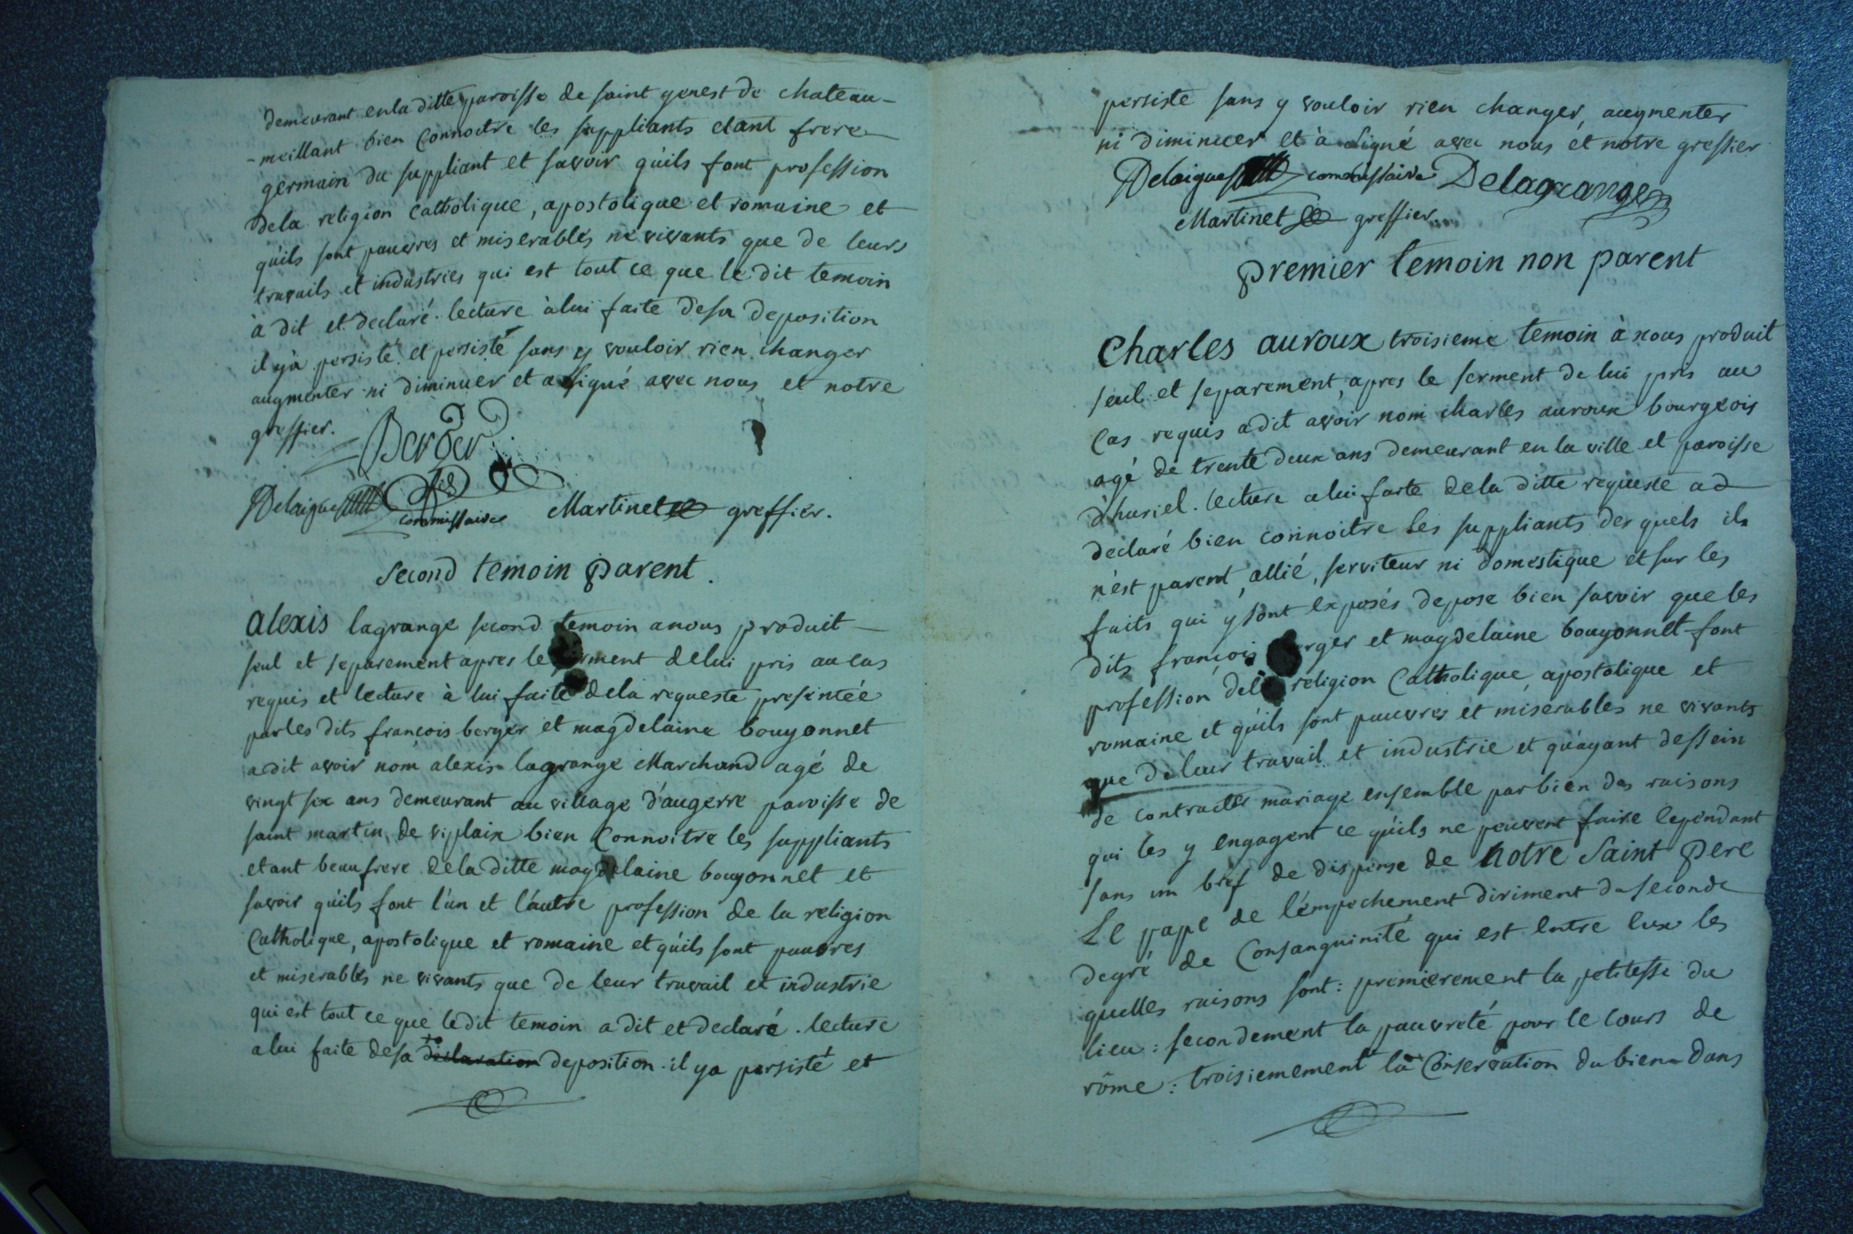 demeurant en la ditte paroisse de saint genest de chateau-
-meillant bien connoitre les suppliants etant frere
germain du suppliant et savoir qu'ils font profession
dela religion catholique, apostolique et romaine et
qu'ils sont pauvres et miserables ne vivants que de leurs
travails et industries qui est tout ce que le dit temoin
à dit et declaré. lecture à lui faite desa deposition
il y'à persisté et persiste sans y vouloir rien changer
augmenter ni diminuer et a signé avec nous et notre
greffier.
Berger
Delaigue commissaire Martinet greffier.
second temoin parent.
alexis lagrange second temoin anous produit
seul et separement apres le serment delui pris au cas
requis et lecture à lui faite dela requeste presentée
par les dits francois berger et magdelaine bouyonnet
a dit avoir nom alexis lagrange Marchand agé de
vingt six ans demeurant au village d'augerre paroisse de
saint martin de viplaix bien connoitre les suppliants
etant beaufrere dela ditte magdelaine bouyonnet et
savoir qu'ils font l'un et l'autre profession de la religion
Catholique, apostolique et romaine et qu'ils sont pauvres
et miserables ne vivants que de leur travail et industrie
qui est tout ce que ledit temoin a dit et declaré. lecture
a lui faite desa declaration deposition il ya persisté et
persiste sans y vouloir rien changer, augmenter
ni diminuer et à signé avec nous et notre greffier
Delaigue commissaire Delagrange
Martinet greffier
premier temoin non parent
Charles auroux troisieme temoin à nous produit
seul et separement, apres le serment de lui pris au
cas requis a dit avoir nom charles auroux bourgeois
agé de trente deux ans demeurant en la ville et paroisse
d'huriel. lecture a lui faite dela ditte requeste a
declaré bien connoitre les suppliants des quels il
n'est parent, allié, serviteur ni domestique et sur les
faits qui y sont exposés depose bien savoir que les
dits françois berger et magdelaine bouyonnet font
profession dela religion Catholique apostolique et
romaine et qu'ils sont pauvres et miserables ne vivants
que de leur travail et industrie et qu'ayant dessein
de contracter mariage ensemble par bien des raisons
qui les y engagent ce qu'ils ne peuvent faire cependant
sans un bref de dispense de notre saint pere
Le pape de l'empechement diriment du seconde
degré de Consanguinité qui est entre eux les
quelles raisons sont: premierement la petitesse du
lieu: secondement la pauvreté pour le cours de
rôme: troisiemement la Conservation du bien dans